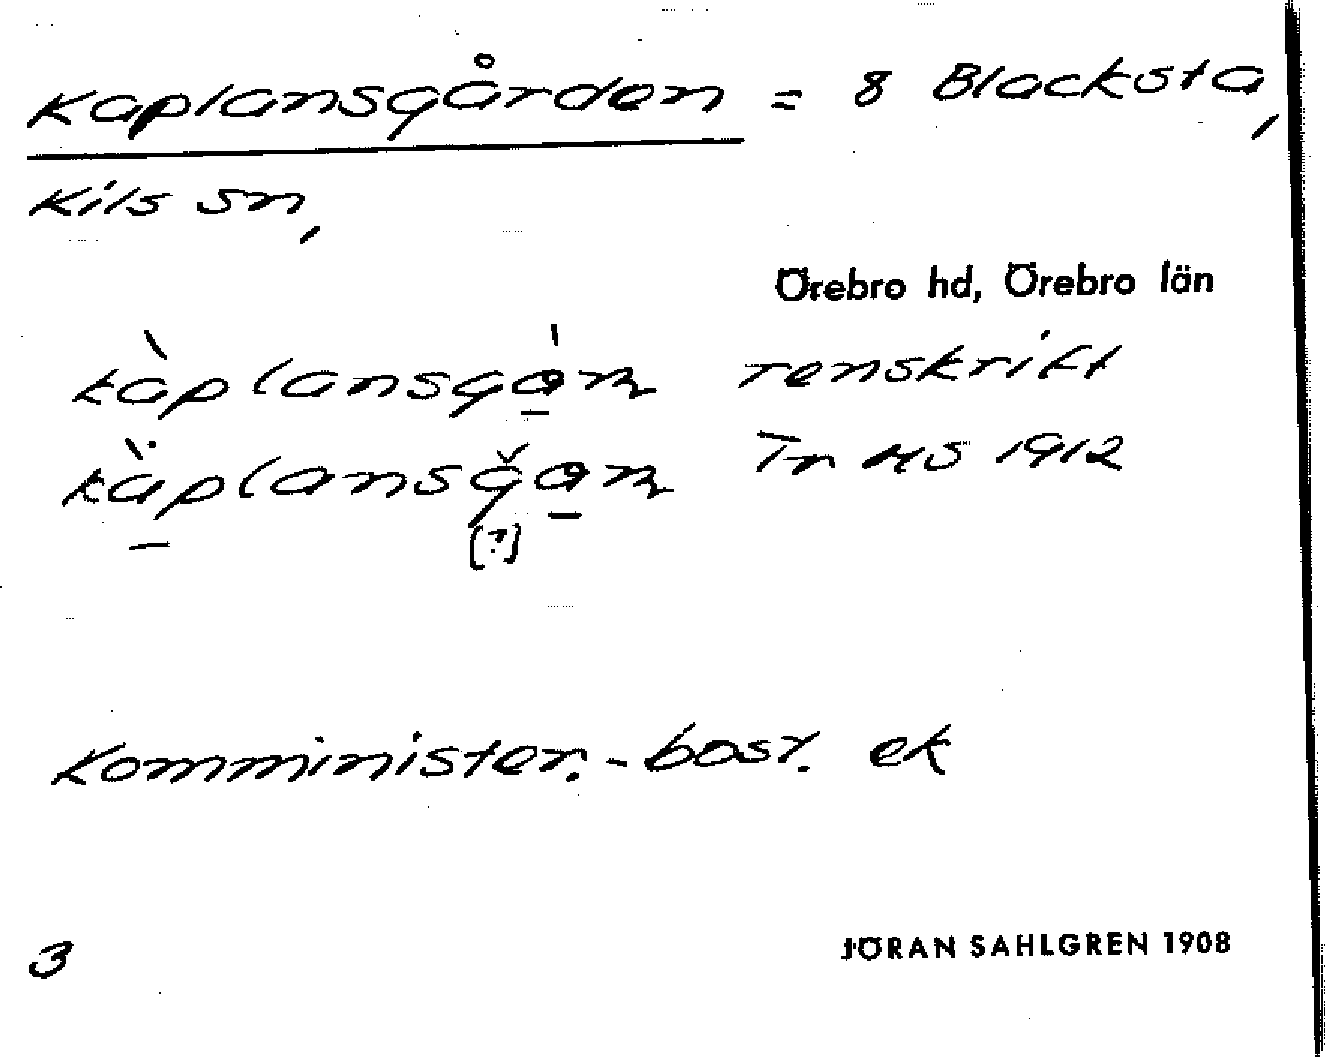 Kaplansgården = 8 Blacksta,
Kils sn,
Örebro hd, Örebro län
renskrift
1912
(?)
Komminister.-bost. ek
3
JÖRAN SAHLGREN 1908